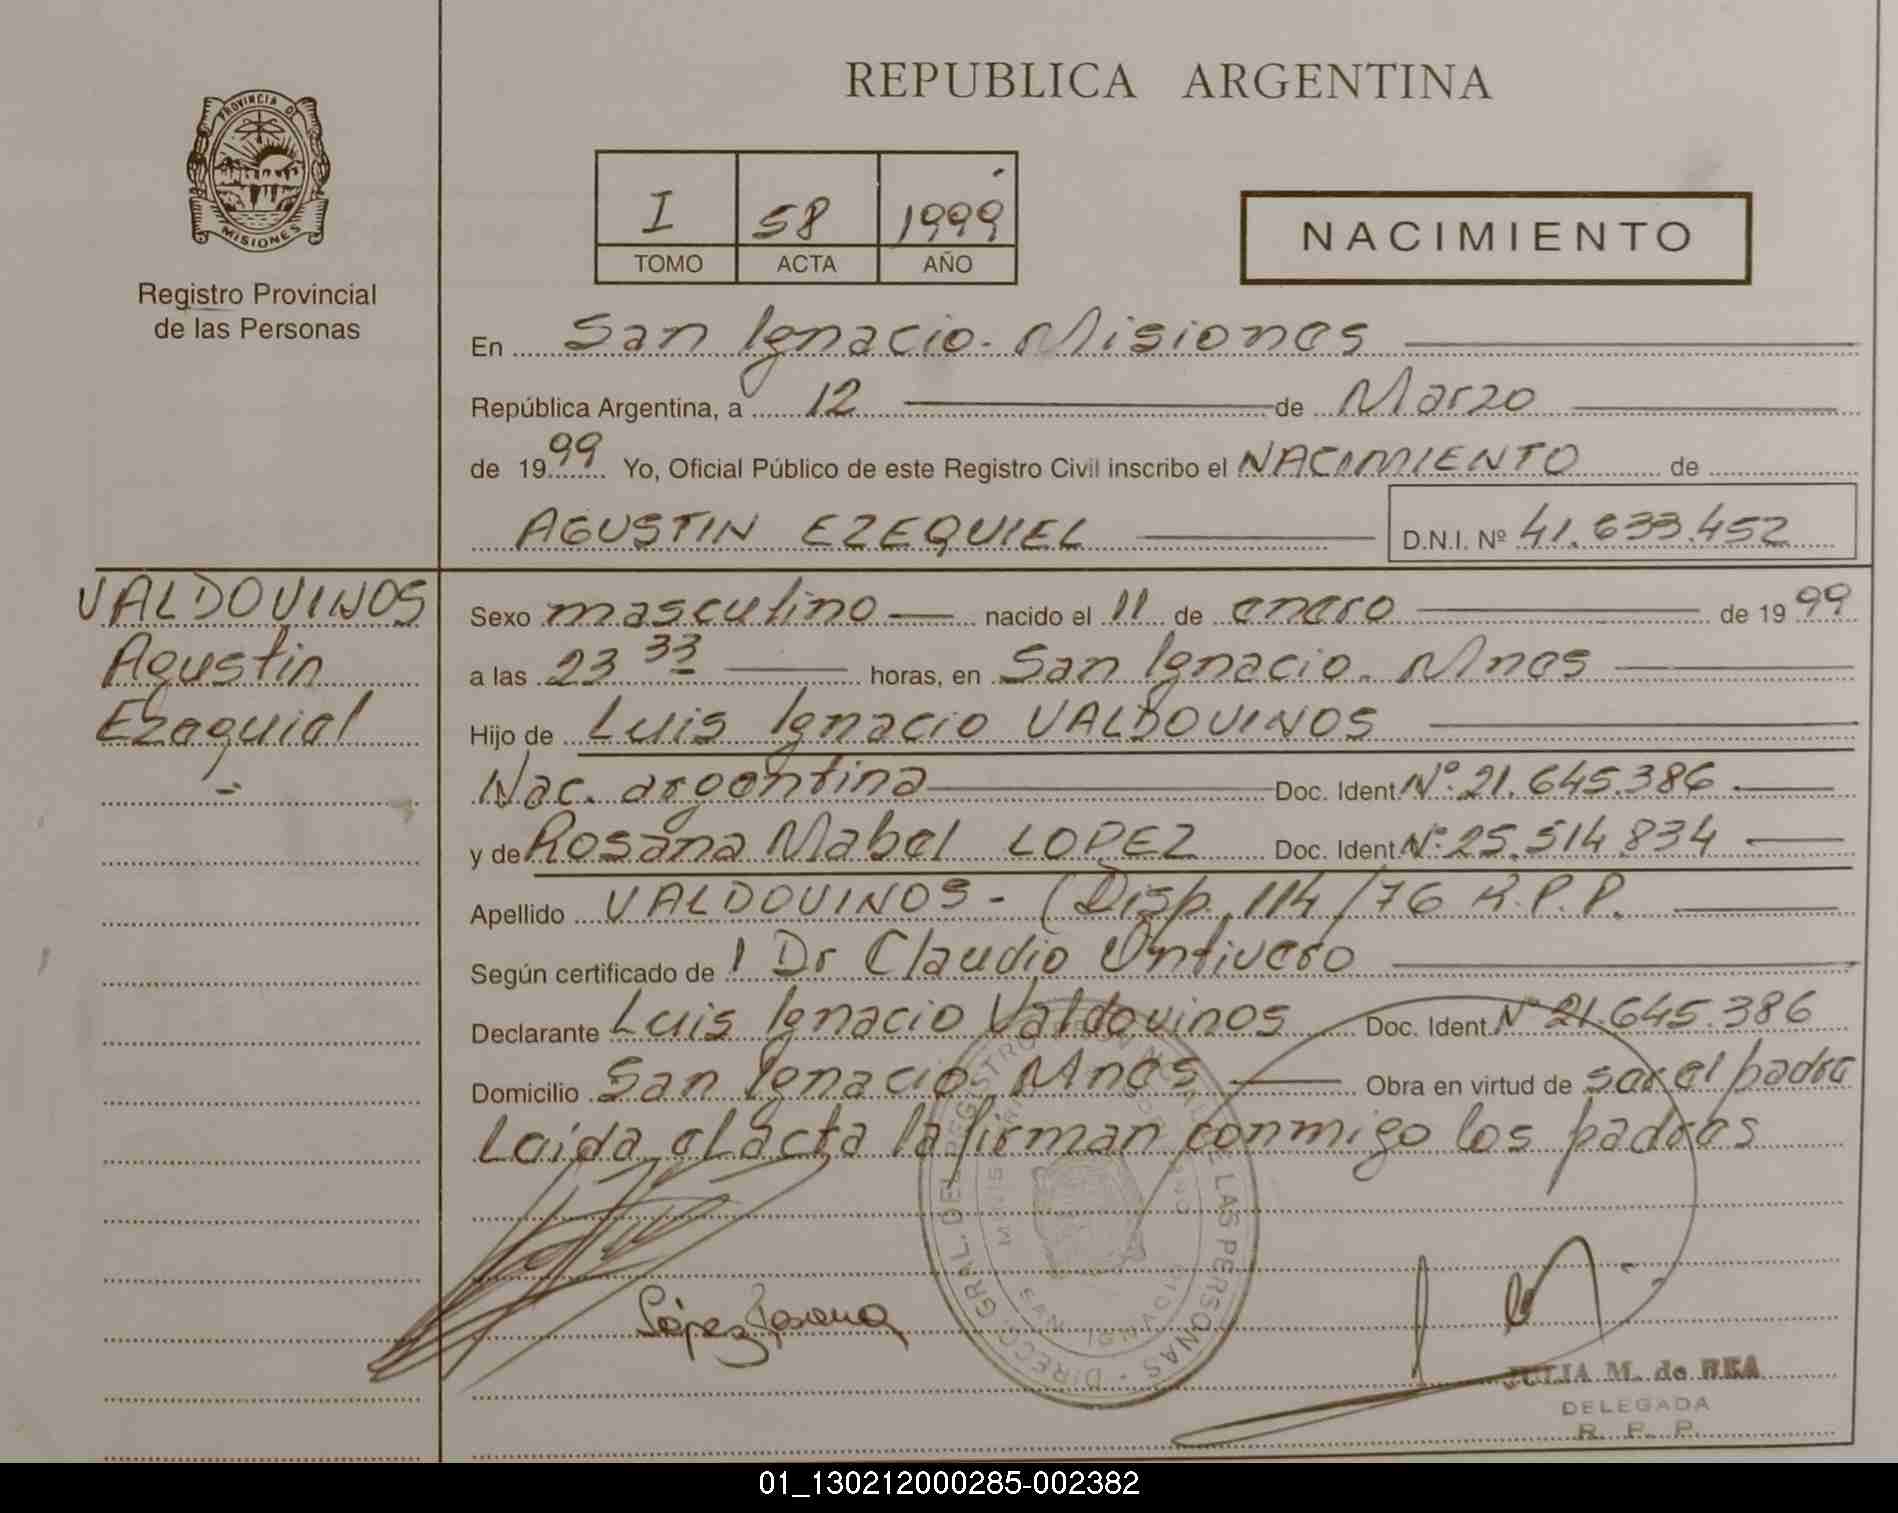 REPUBLICA ARGENTINA
PROVINCIA DE
MISIONES
Registro Provincial
de las Personas
I 58 1999
TOMO ACTA AÑO
NACIMIENTO
En San Ignacio. Misiones
República Argentina, a 12 de Marzo
de 1999 Yo, Oficial Público de este Registro Civil inscribo el NACIMIENTO de
AGUSTIN EZEQUIEL D.N.I. Nº 41.633.452
VALDOVINOS
Agustin
Ezequiel
Sexo masculino nacido el 11 de enero de 1999
a las 23 33 horas, en San Ignacio. Mnes
Hijo de Luis Ignacio VALDOVINOS
Nac. argentina Doc. Ident. Nº 21.645.386
y de Rosana Mabel LOPEZ Doc. Ident. Nº 25.514.834
Apellido VALDOVINOS - (Disp. 114/76 R.P.P.
Según certificado de Dr Claudio Ontivero
Declarante Luis Ignacio Valdovinos Doc. Ident. Nº 21.645.386
Domicilio San Ignacio Mnes Obra en virtud de ser el padre
Leida el acta la firman conmigo los padres
López Rosana
DIRECC. GRAL. DEL REGISTRO DE LAS PERSONAS
JULIA M. de REA
DELEGADA
R. P. P.
01_130212000285-002382